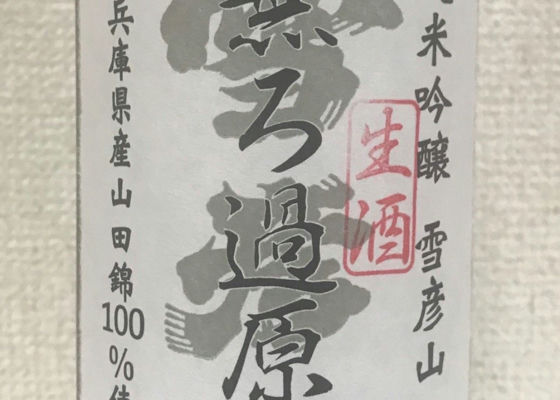 米吟醸 雪彦山
生酒
無ろ過原
兵庫県産山田錦100%